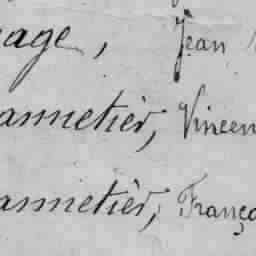 age, Jean
annetier, Vincen
annetier, Franço